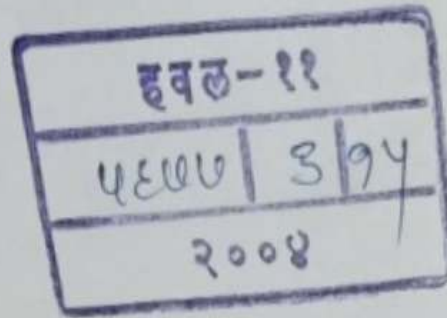 हवल-११
५६७७ | ३ | १५
२००४